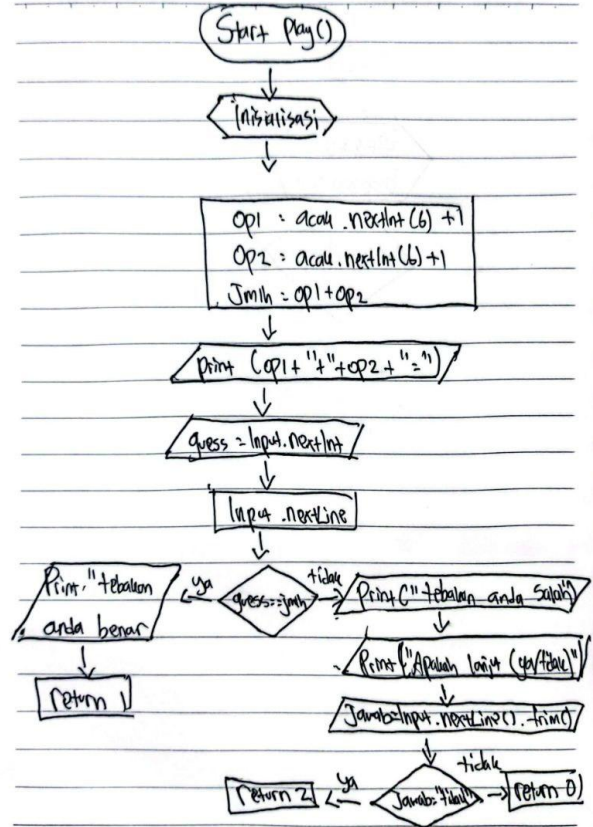 Start Play()
Inisialisasi
Op1 = acak.nextInt(6) +1
Op2 = acak.nextInt(6)+1
Jmlh = op1+op2
print (op1+"+"+op2+"=")
guess = Input.nextInt
Input.nextLine
ya
guess==jmlh
tidak
Print."tebakan
anda benar
return 1
Print("tebakan anda salah)
Print("Apakah lanjut (ya/tidak)"
Jawab=Input.nextLine().trim()
Jawab="tidak"
ya
return 2
tidak
return 0